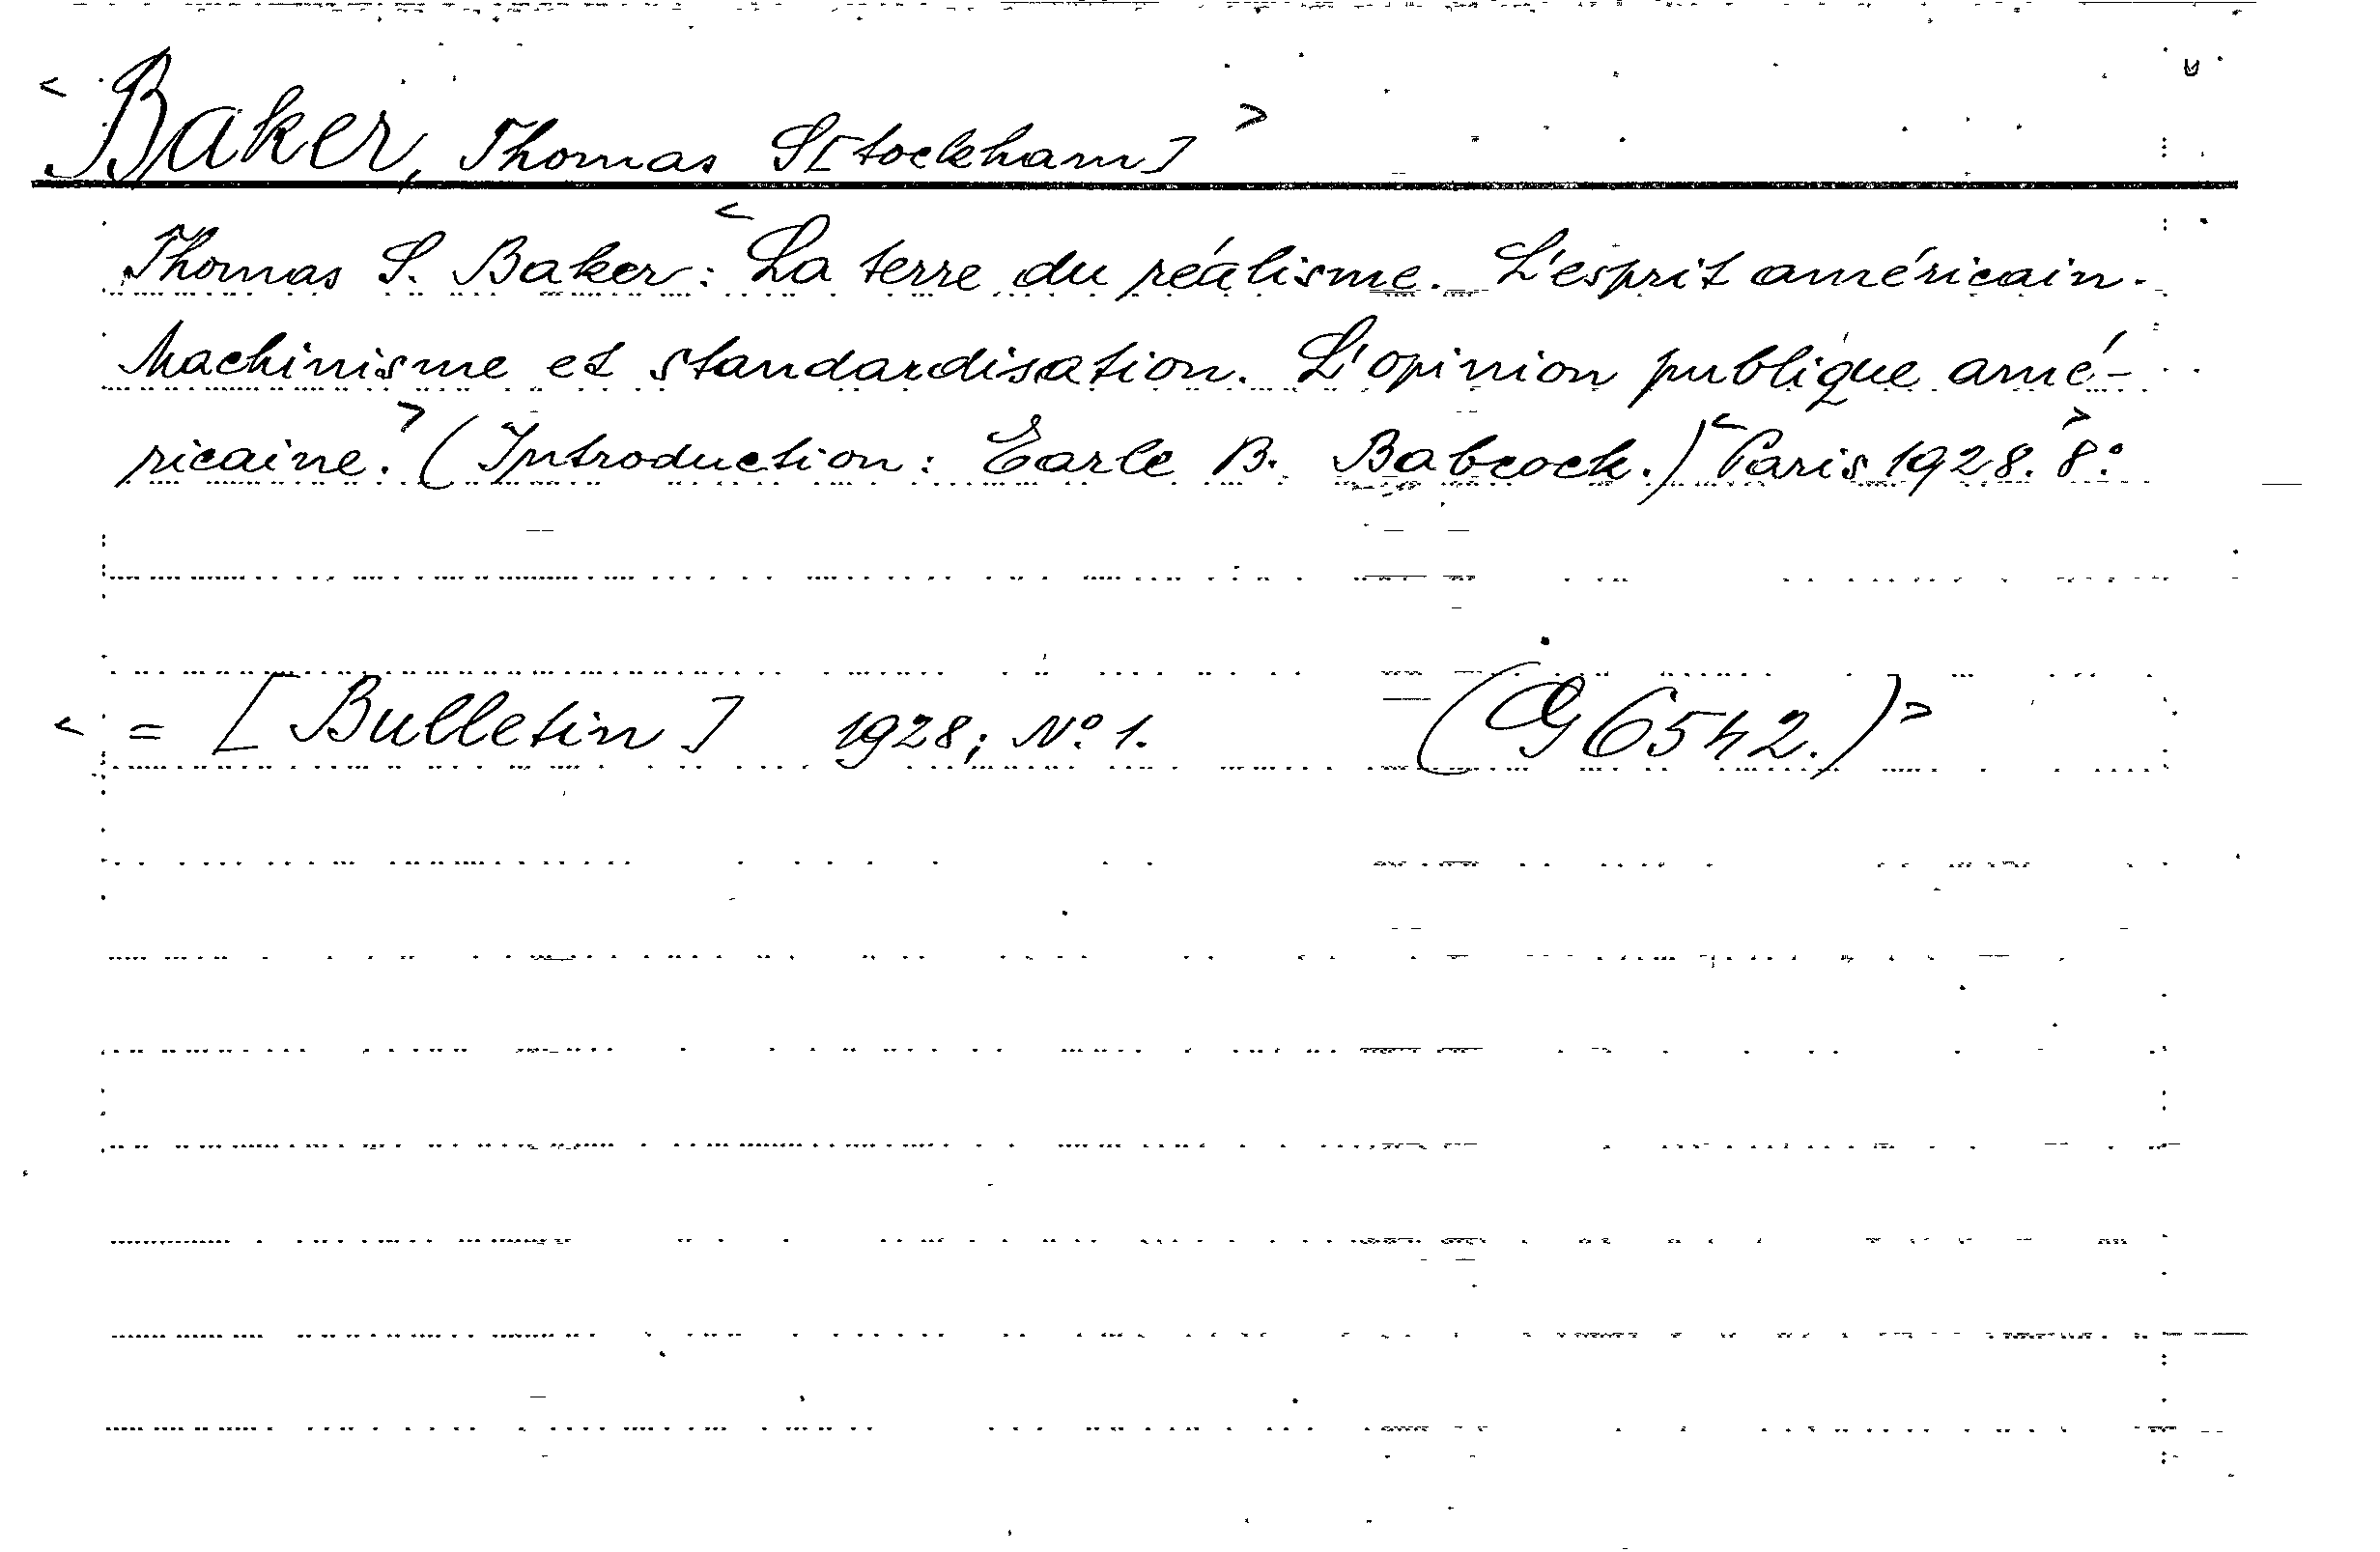 < Baker, Thomas S[tockham] >
Thomas S. Baker: < La terre du réalisme. L'esprit américain.
Machinisme et standardisation. L'opinion publique amé-
ricaine. > (Introduction: Earle B. Babcock.) < Paris 1928. > 8°.
< = [Bulletin] 1928; No. 1. (G 6542.) >